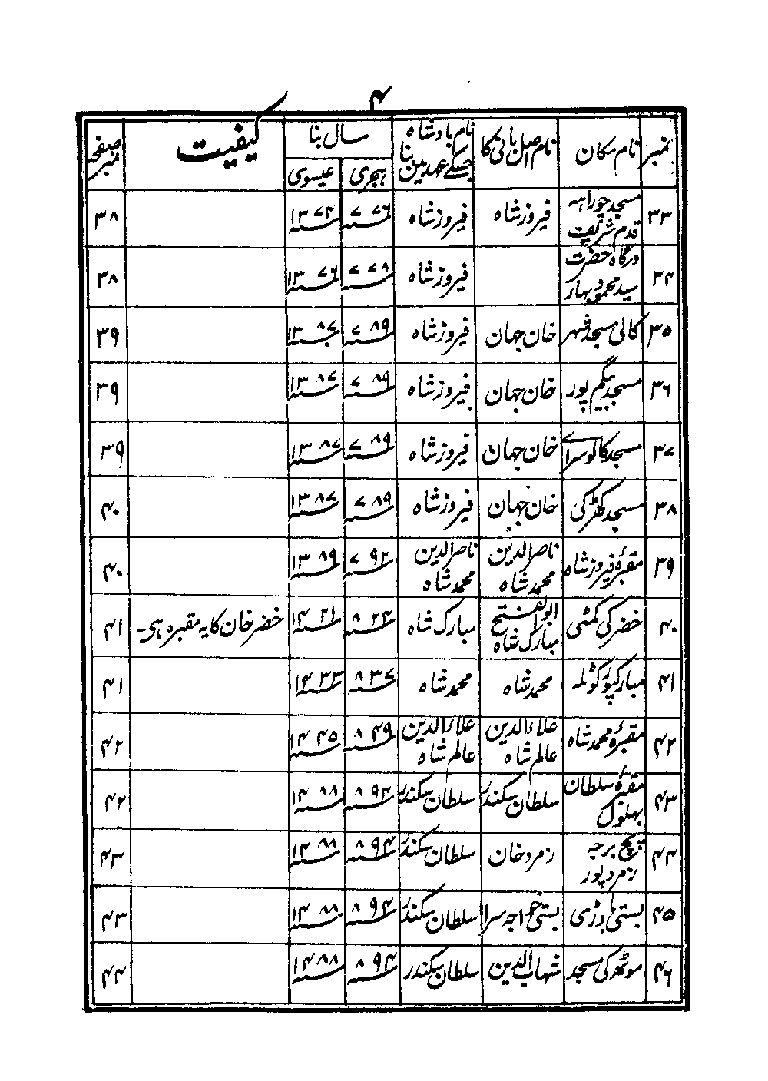 ۴
نمبر نام مکان نام اصل بانی کا نام بادشاہ جسکے عہد میں بنا سال بنا ہجری عیسوی کیفیت صفحہ نمبر
۳۳ مسجد چوراہہ قدم شریف فیروز شاہ فیروز شاہ ۷۷۶ ۱۳۷۴ ۳۸
۳۴ درگاہ حضرت سید محمود بہار فیروز شاہ ۷۷۸ ۱۳۷۶ ۳۸
۳۵ کالی مسجد شہر خان جہان فیروز شاہ ۷۸۹ ۱۳۸۷ ۳۹
۳۶ مسجد بیگم پور خان جہان فیروز شاہ ۷۸۹ ۱۳۸۷ ۳۹
۳۷ مسجد کالو سراے خان جہان فیروز شاہ ۷۸۹ ۱۳۸۷ ۳۹
۳۸ مسجد کھڑکی خان جہان فیروز شاہ ۷۸۹ ۱۳۸۷ ۴۰
۳۹ مقبرۂ فیروز شاہ ناصرالدین محمد شاہ ناصرالدین محمد شاہ ۷۹۲ ۱۳۸۹ ۴۰
۴۰ خضر کی گمٹی ابوالفتح مبارک شاہ مبارک شاہ ۸۲۴ ۱۴۲۱ خضر خان کا یہ مقبرہ ہی۔ ۴۱
۴۱ مبارکپور کوٹلہ محمد شاہ محمد شاہ ۸۳۷ ۱۴۳۳ ۴۱
۴۲ مقبرۂ محمد شاہ علاءالدین عالم شاہ علاءالدین عالم شاہ ۸۴۹ ۱۴۴۵ ۴۲
۴۳ مقبرۂ سلطان بہلول سلطان سکندر سلطان سکندر ۸۹۴ ۱۴۸۸ ۴۲
۴۴ پنج برجہ زمردپور زمرد خان سلطان سکندر ۸۹۴ ۱۴۸۸ ۴۳
۴۵ بستی باوڑی بستی خواجہ سرا سلطان سکندر ۸۹۴ ۱۴۸۸ ۴۳
۴۶ موٹھ کی مسجد شہاب الدین سلطان سکندر ۸۹۴ ۱۴۸۸ ۴۴